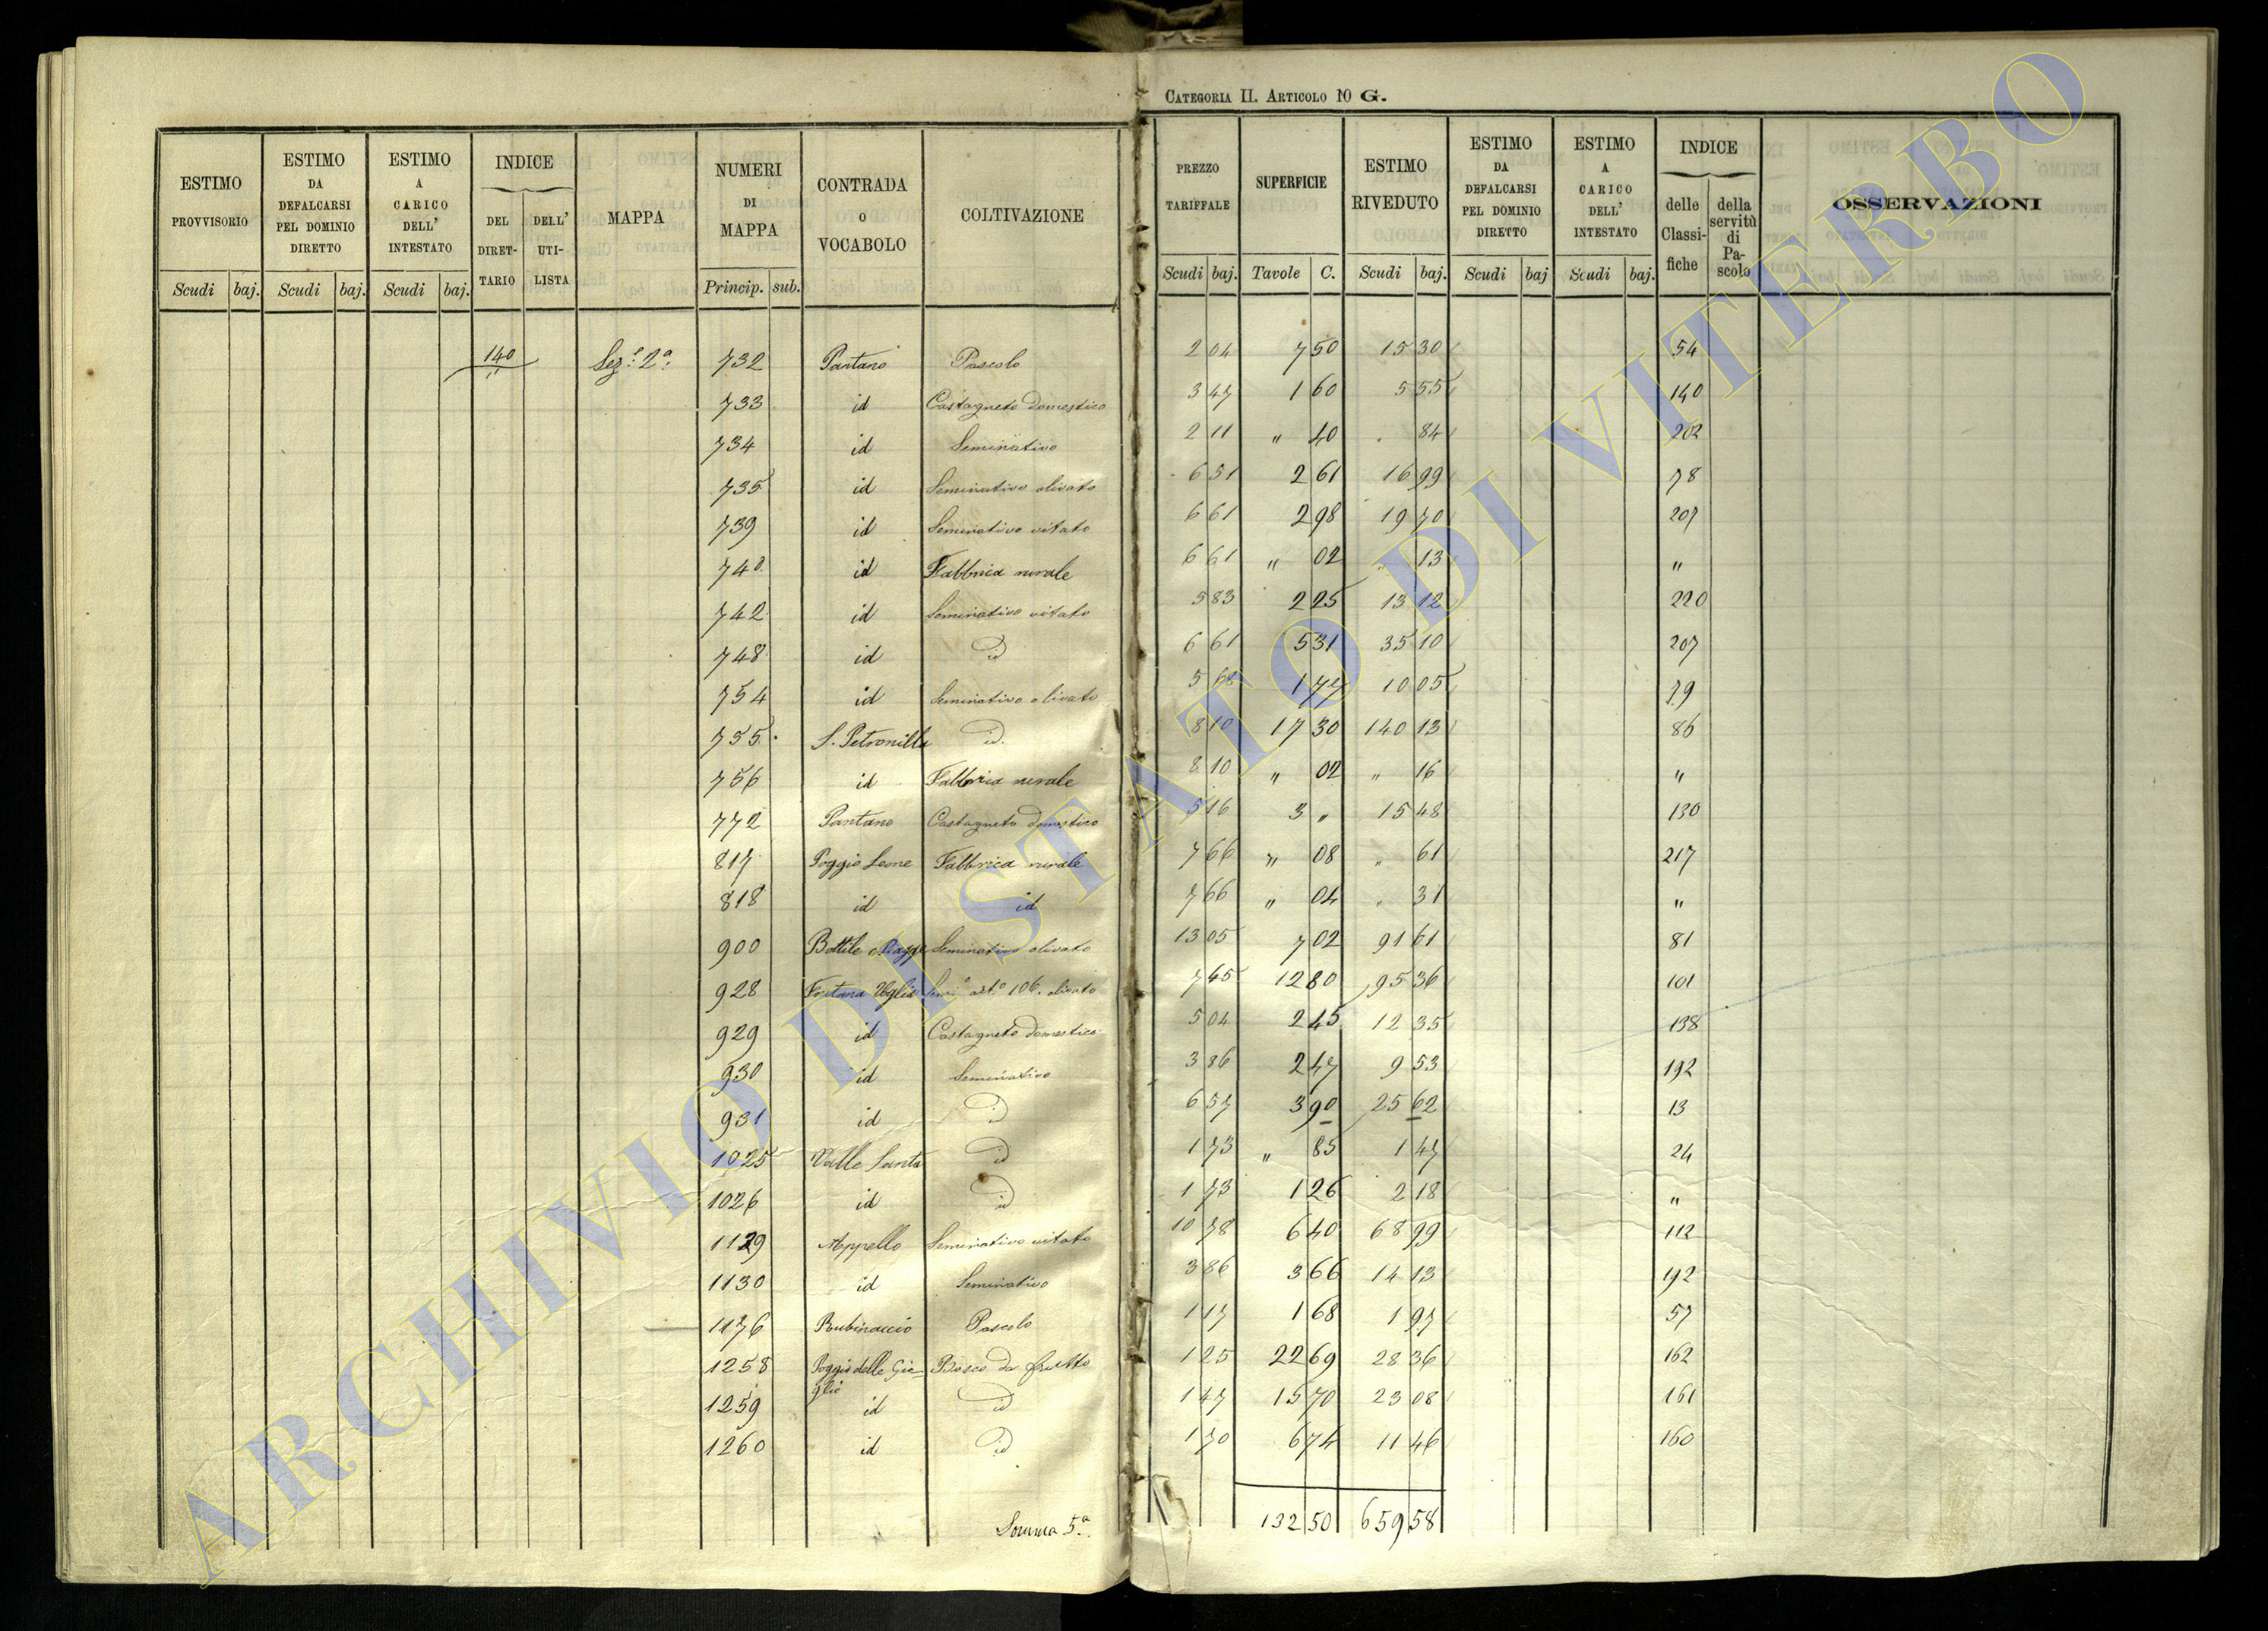 CATEGORIA II. ARTICOLO 10 G.
ESTIMO PROVVISORIO Scudi baj.
ESTIMO DA DEFALCARSI PEL DOMINIO DIRETTO Scudi baj.
ESTIMO A CARICO DELL' INTESTATO Scudi baj.
INDICE DEL DIRETTARIO DELL' UTILISTA
MAPPA
NUMERI DI MAPPA Princip. sub.
CONTRADA O VOCABOLO
COLTIVAZIONE
PREZZO TARIFFALE Scudi baj.
SUPERFICIE Tavole C.
ESTIMO RIVEDUTO Scudi baj.
ESTIMO DA DEFALCARSI PEL DOMINIO DIRETTO Scudi baj
ESTIMO A CARICO DELL' INTESTATO Scudi baj.
INDICE delle Classifiche della servitù di Pascolo
OSSERVAZIONI
140 Sez.e 2a 732 Pantano Pascolo 2 04 7 50 15 30 54
733 id Castagneto domestico 3 47 1 60 5 55 140
734 id Seminativo 2 11 " 40 . 84 202
735 id Seminativo olivato 6 51 2 61 16 99 78
739 id Seminativo vitato 6 61 2 98 19 70 207
740 id Fabbrica rurale 6 61 " 02 " 13 "
742 id Seminativo vitato 5 83 2 25 13 12 220
748 id id 6 61 5 31 35 10 207
754 id Seminativo olivato 5 68 1 77 10 05 79
755 S. Petronilla id. 8 10 17 30 140 13 86
756 id Fabbrica rurale 8 10 " 02 " 16 "
772 Pantano Castagneto domestico 5 16 3 " 15 48 130
817 Poggio Leone Fabbrica rurale 7 66 " 08 " 61 217
818 id id 7 66 " 04 " 31 "
900 Bottile e Piagge Seminativo olivato 13 05 7 02 91 61 81
928 Fontana Uglia Semi.o art.o 106. olivato 7 45 12 80 95 36 101
929 id Castagneto domestico 5 04 2 45 12 35 138
930 id Seminativo 3 86 2 47 9 53 192
931 id id 6 57 3 90 25 62 13
1025 Valle Santa id 1 73 " 85 1 47 24
1026 id id 1 73 1 26 2 18 "
1129 Appello Seminativo vitato 10 78 6 40 68 99 112
1130 id Seminativo 3 86 3 66 14 13 192
1176 Rubinaccio Pascolo 1 17 1 68 1 97 57
1258 Poggio delle Gi- Bosco da frutto 1 25 22 69 28 36 162
glie
1259 id id 1 47 15 70 23 08 161
1260 id id 1 70 6 74 11 46 160
Somma 5.a 132 50 659 58
ARCHIVIO DI STATO DI VITERBO